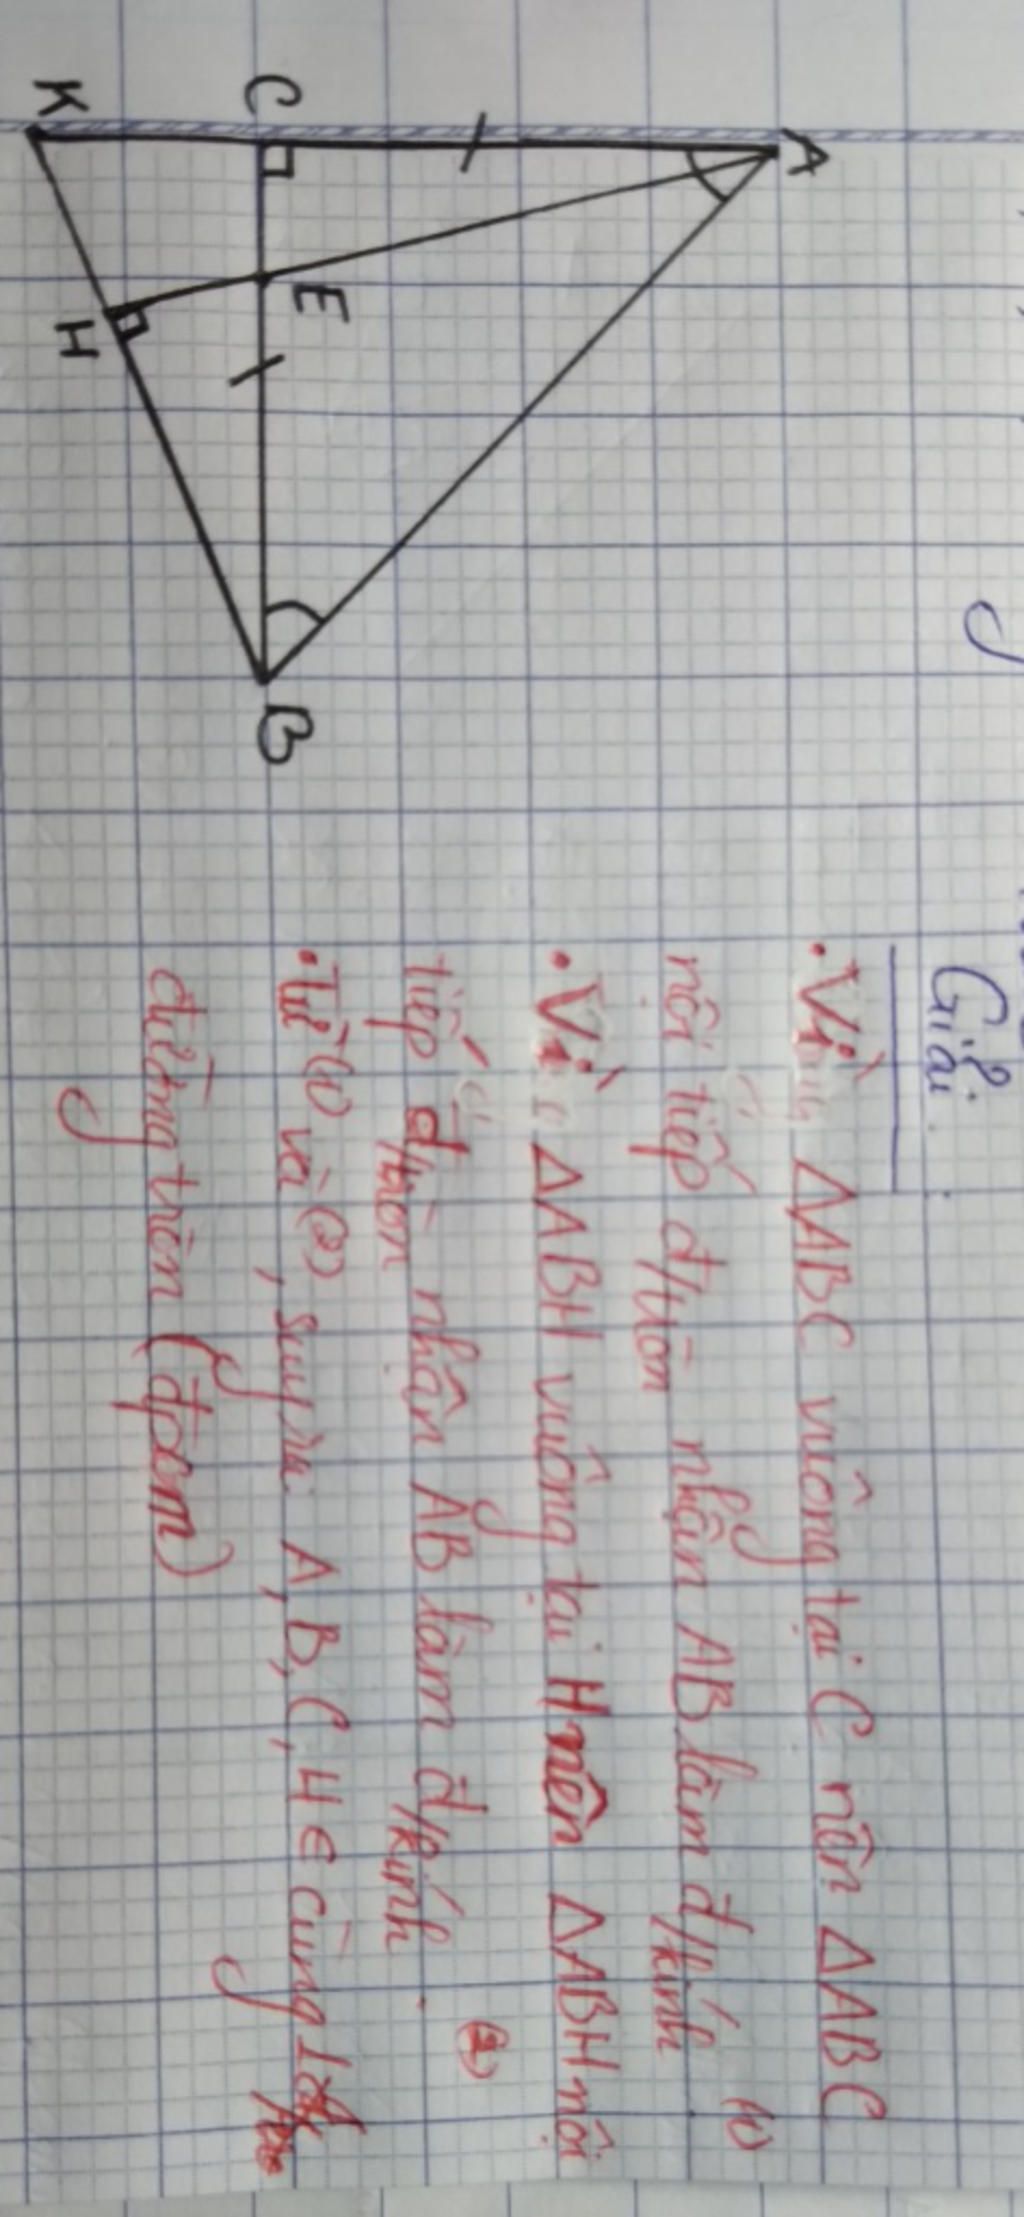 Giải:
• Vì ΔABC vuông tại C nên ΔABC
nội tiếp đ/tròn nhận AB làm đ/kính (1)
• Vì ΔABH vuông tại H nên ΔABH nội
tiếp đ/tròn nhận AB làm đ/kính. (2)
• Từ (1) và (2), suy ra A, B, C, H ∈ cùng 1
đường tròn (đpcm)
A
C
K
E
H
B